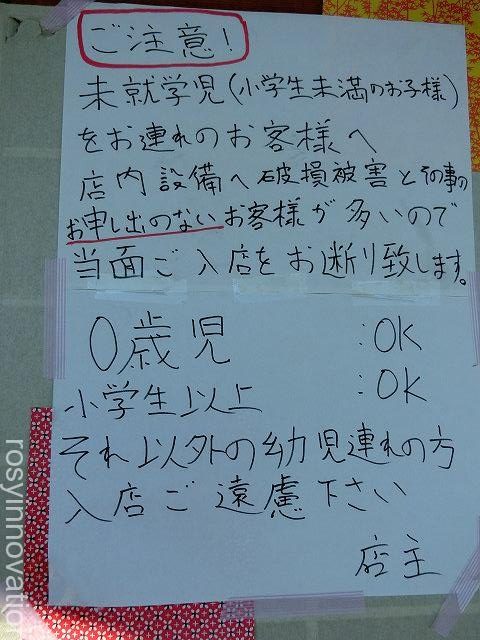 ご注意!
未就学児(小学生未満のお子様)
をお連れのお客様へ
店内設備へ破損被害とその事の
お申し出のないお客様が多いので
当面ご入店をお断り致します。
0歳児 :OK
小学生以上 :OK
それ以外の幼児連れの方
入店ご遠慮下さい
店主
rosyinnovatio